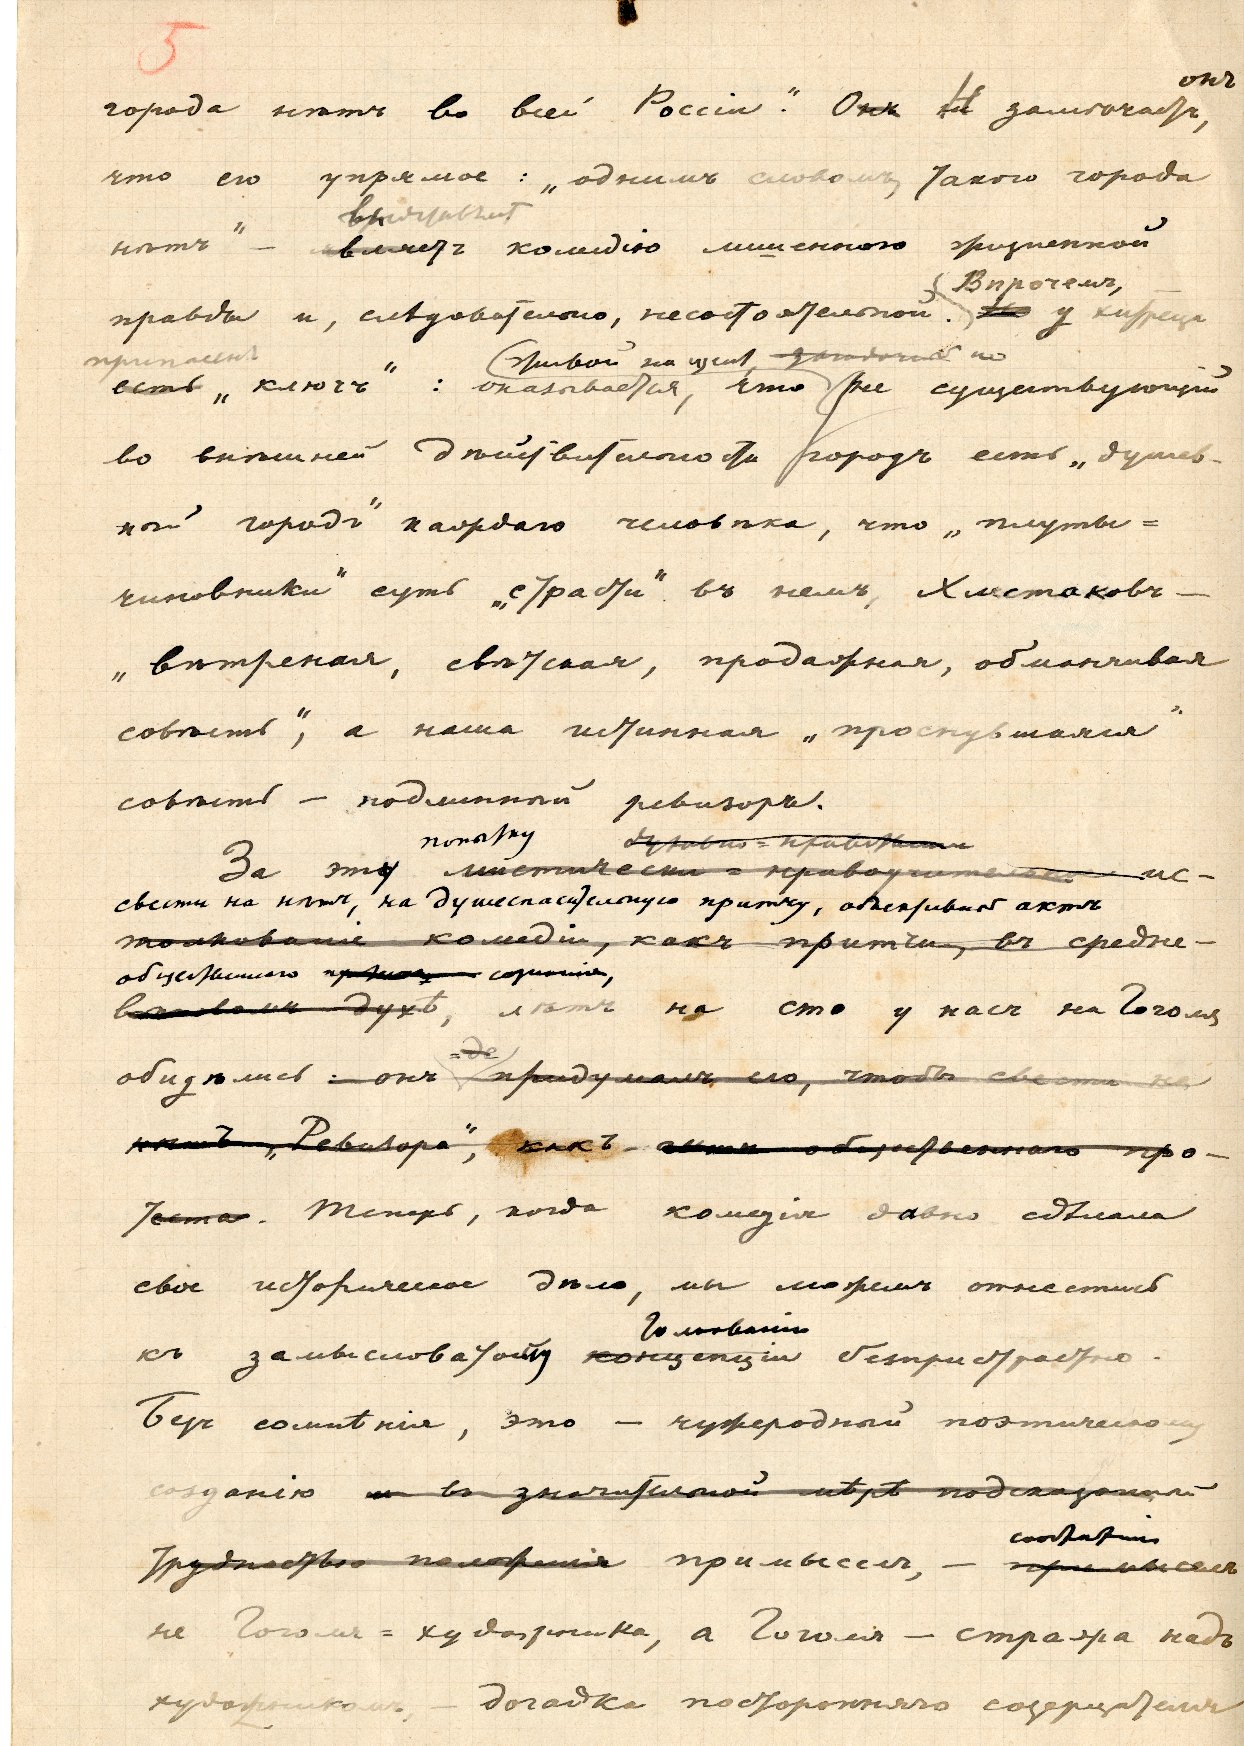 5
онъ
города нѣтъ во всей Россіи". Онъ И замѣчаетъ,
что его упрямое: „однимъ словомъ, такого города
выставляетъ
нѣтъ" — комедію лишенною жизненной
Впрочемъ,
правды и, слѣдовательно, несостоятельной. у хитреца
припасенъ
живой на землѣ, но
есть „ключъ": оказывается, что не существующій
во внѣшней дѣйствительности городъ есть „душев-
ный городъ" каждаго человѣка, что „плуты=
чиновники" суть „страсти" въ немъ, Хлестаковъ —
„вѣтреная, свѣтская, продажная, обманчивая
совѣсть", а наша истинная „проснувшаяся"
совѣсть — подлинный ревизоръ.
попытку
За эту мистически=нравоучительное ис-
свести на нѣтъ, на душеспасительную притчу, объективный актъ
толкованіе комедіи, какъ притчи, въ средне-
общественнаго сознанія,
вѣковомъ духѣ, лѣтъ на сто у насъ на Гоголя
=де
обидѣлись: онъ придумалъ его, чтобы свести на
нѣтъ „Ревизора", какъ актъ общественнаго про-
теста. Теперь, когда комедія давно сдѣлала
свое историческое дѣло, мы можемъ отнестись
толкованію
къ замысловатому концепціи безпристрастно.
Безъ сомнѣнія, это — чужеродный поэтическому
созданію и въ значительной мѣрѣ подсказанный
трудностью положенія примыселъ, — примыселъ
не Гоголя=художника, а Гоголя — стража надъ
художникомъ, — догадка посторонняго созерцателя